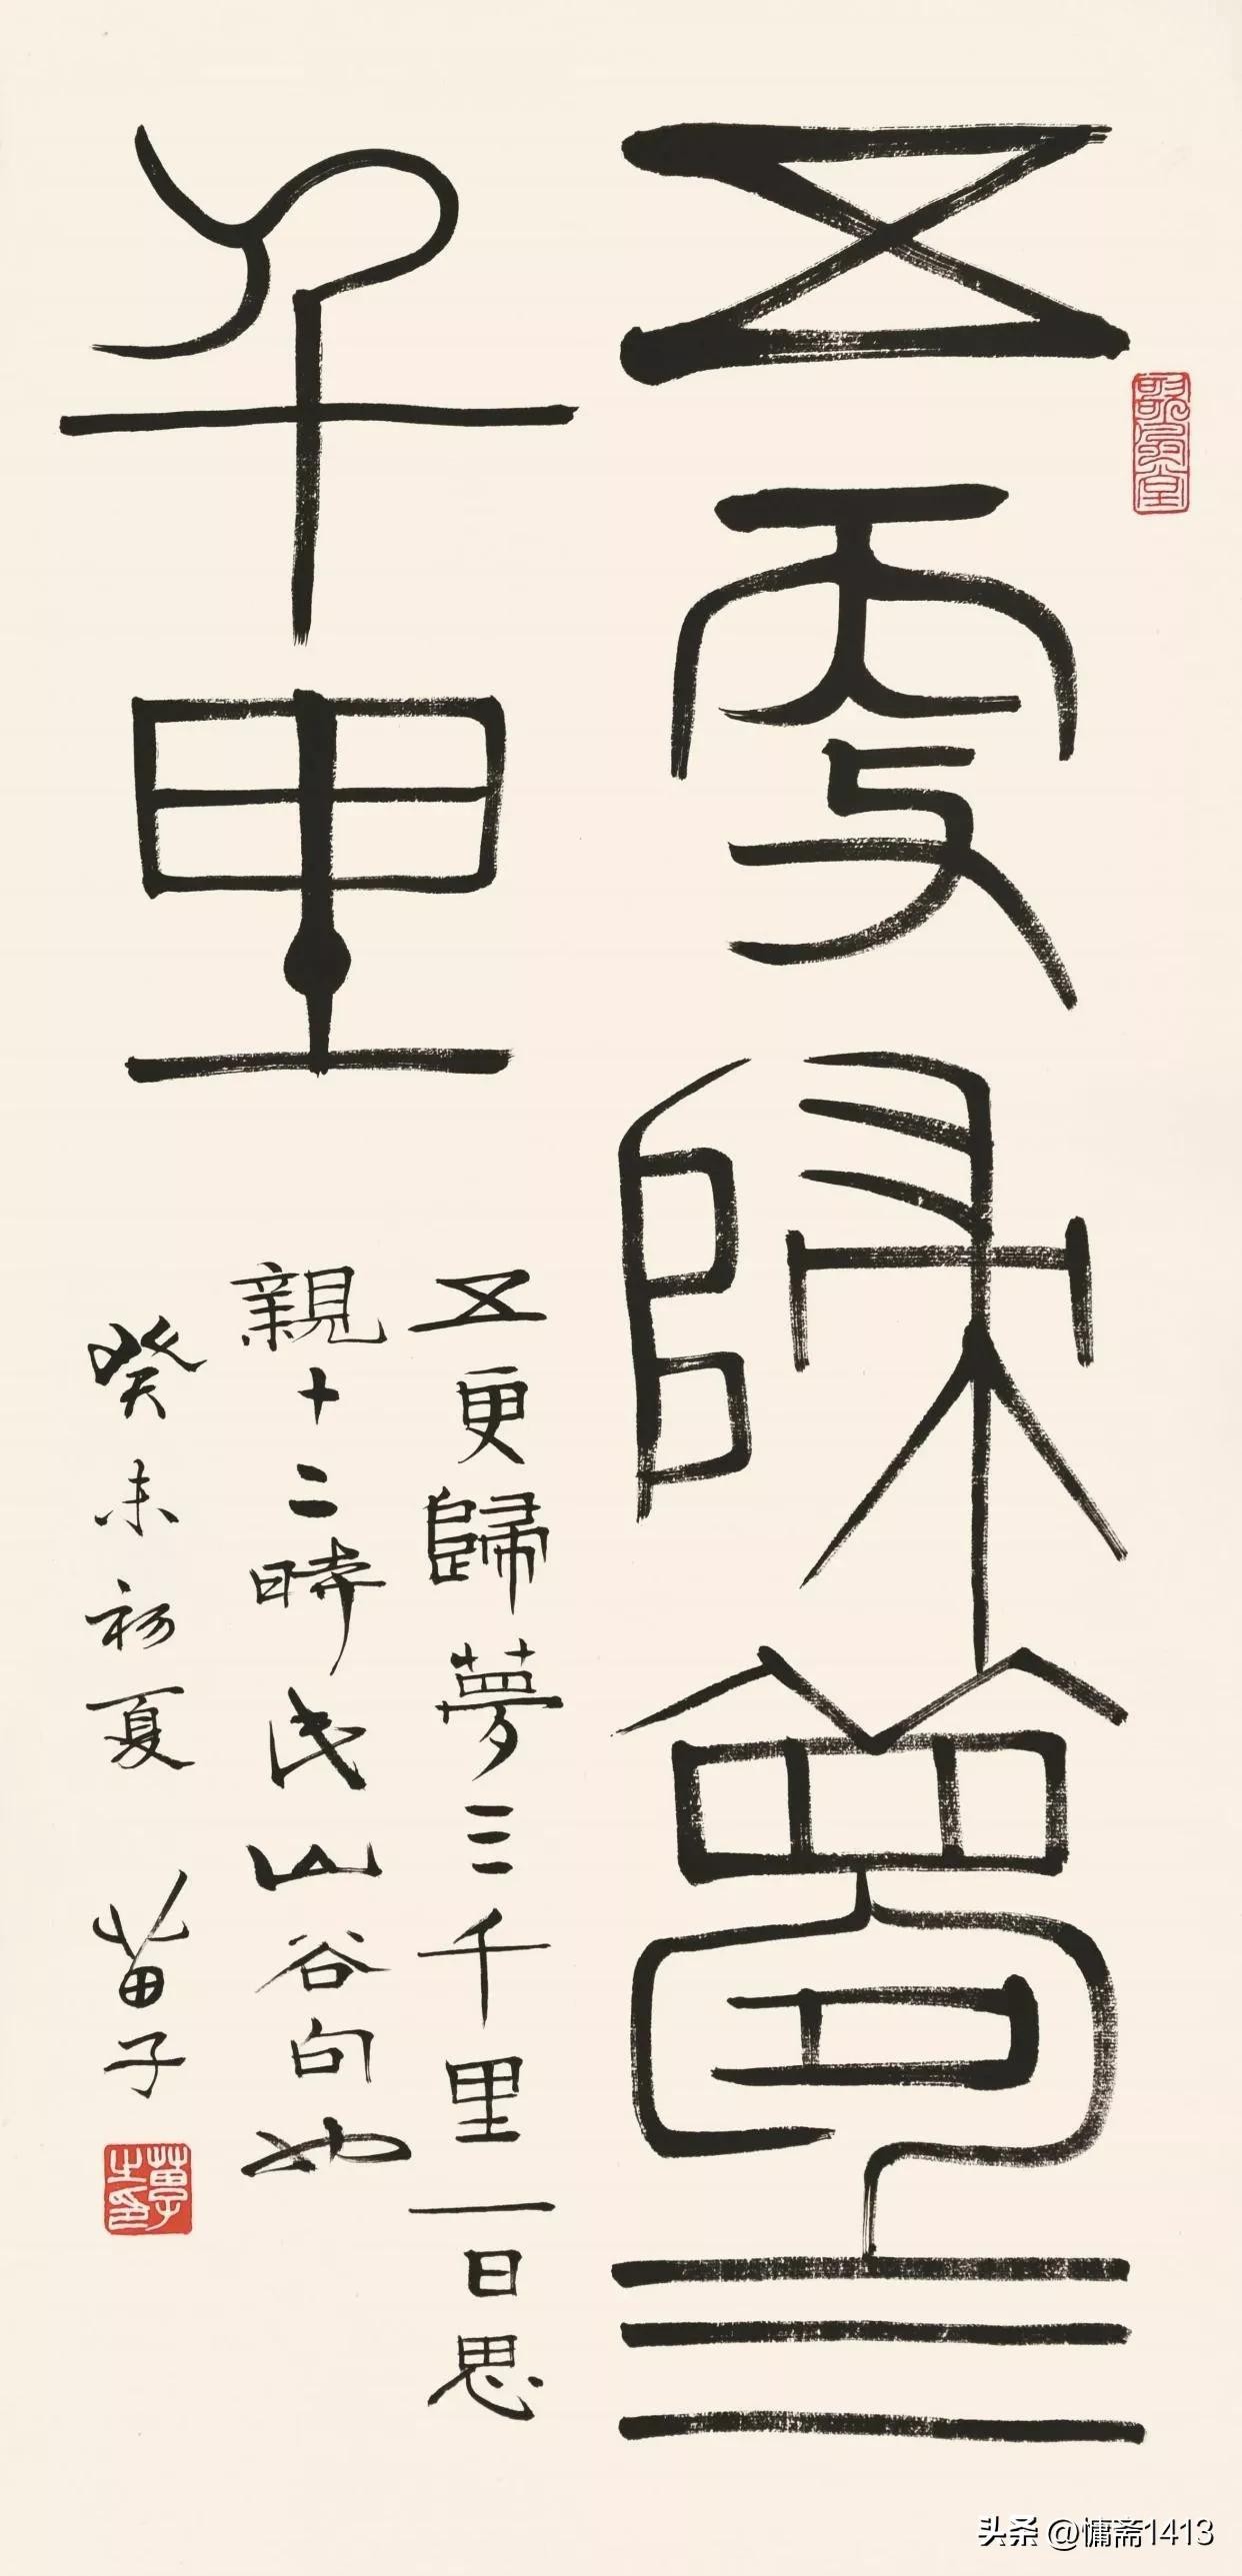 五更歸夢三
千里
五更歸夢三千里一日思
親十二時氏山谷句也
癸未初夏 苗子
頭条 @慵斋1413